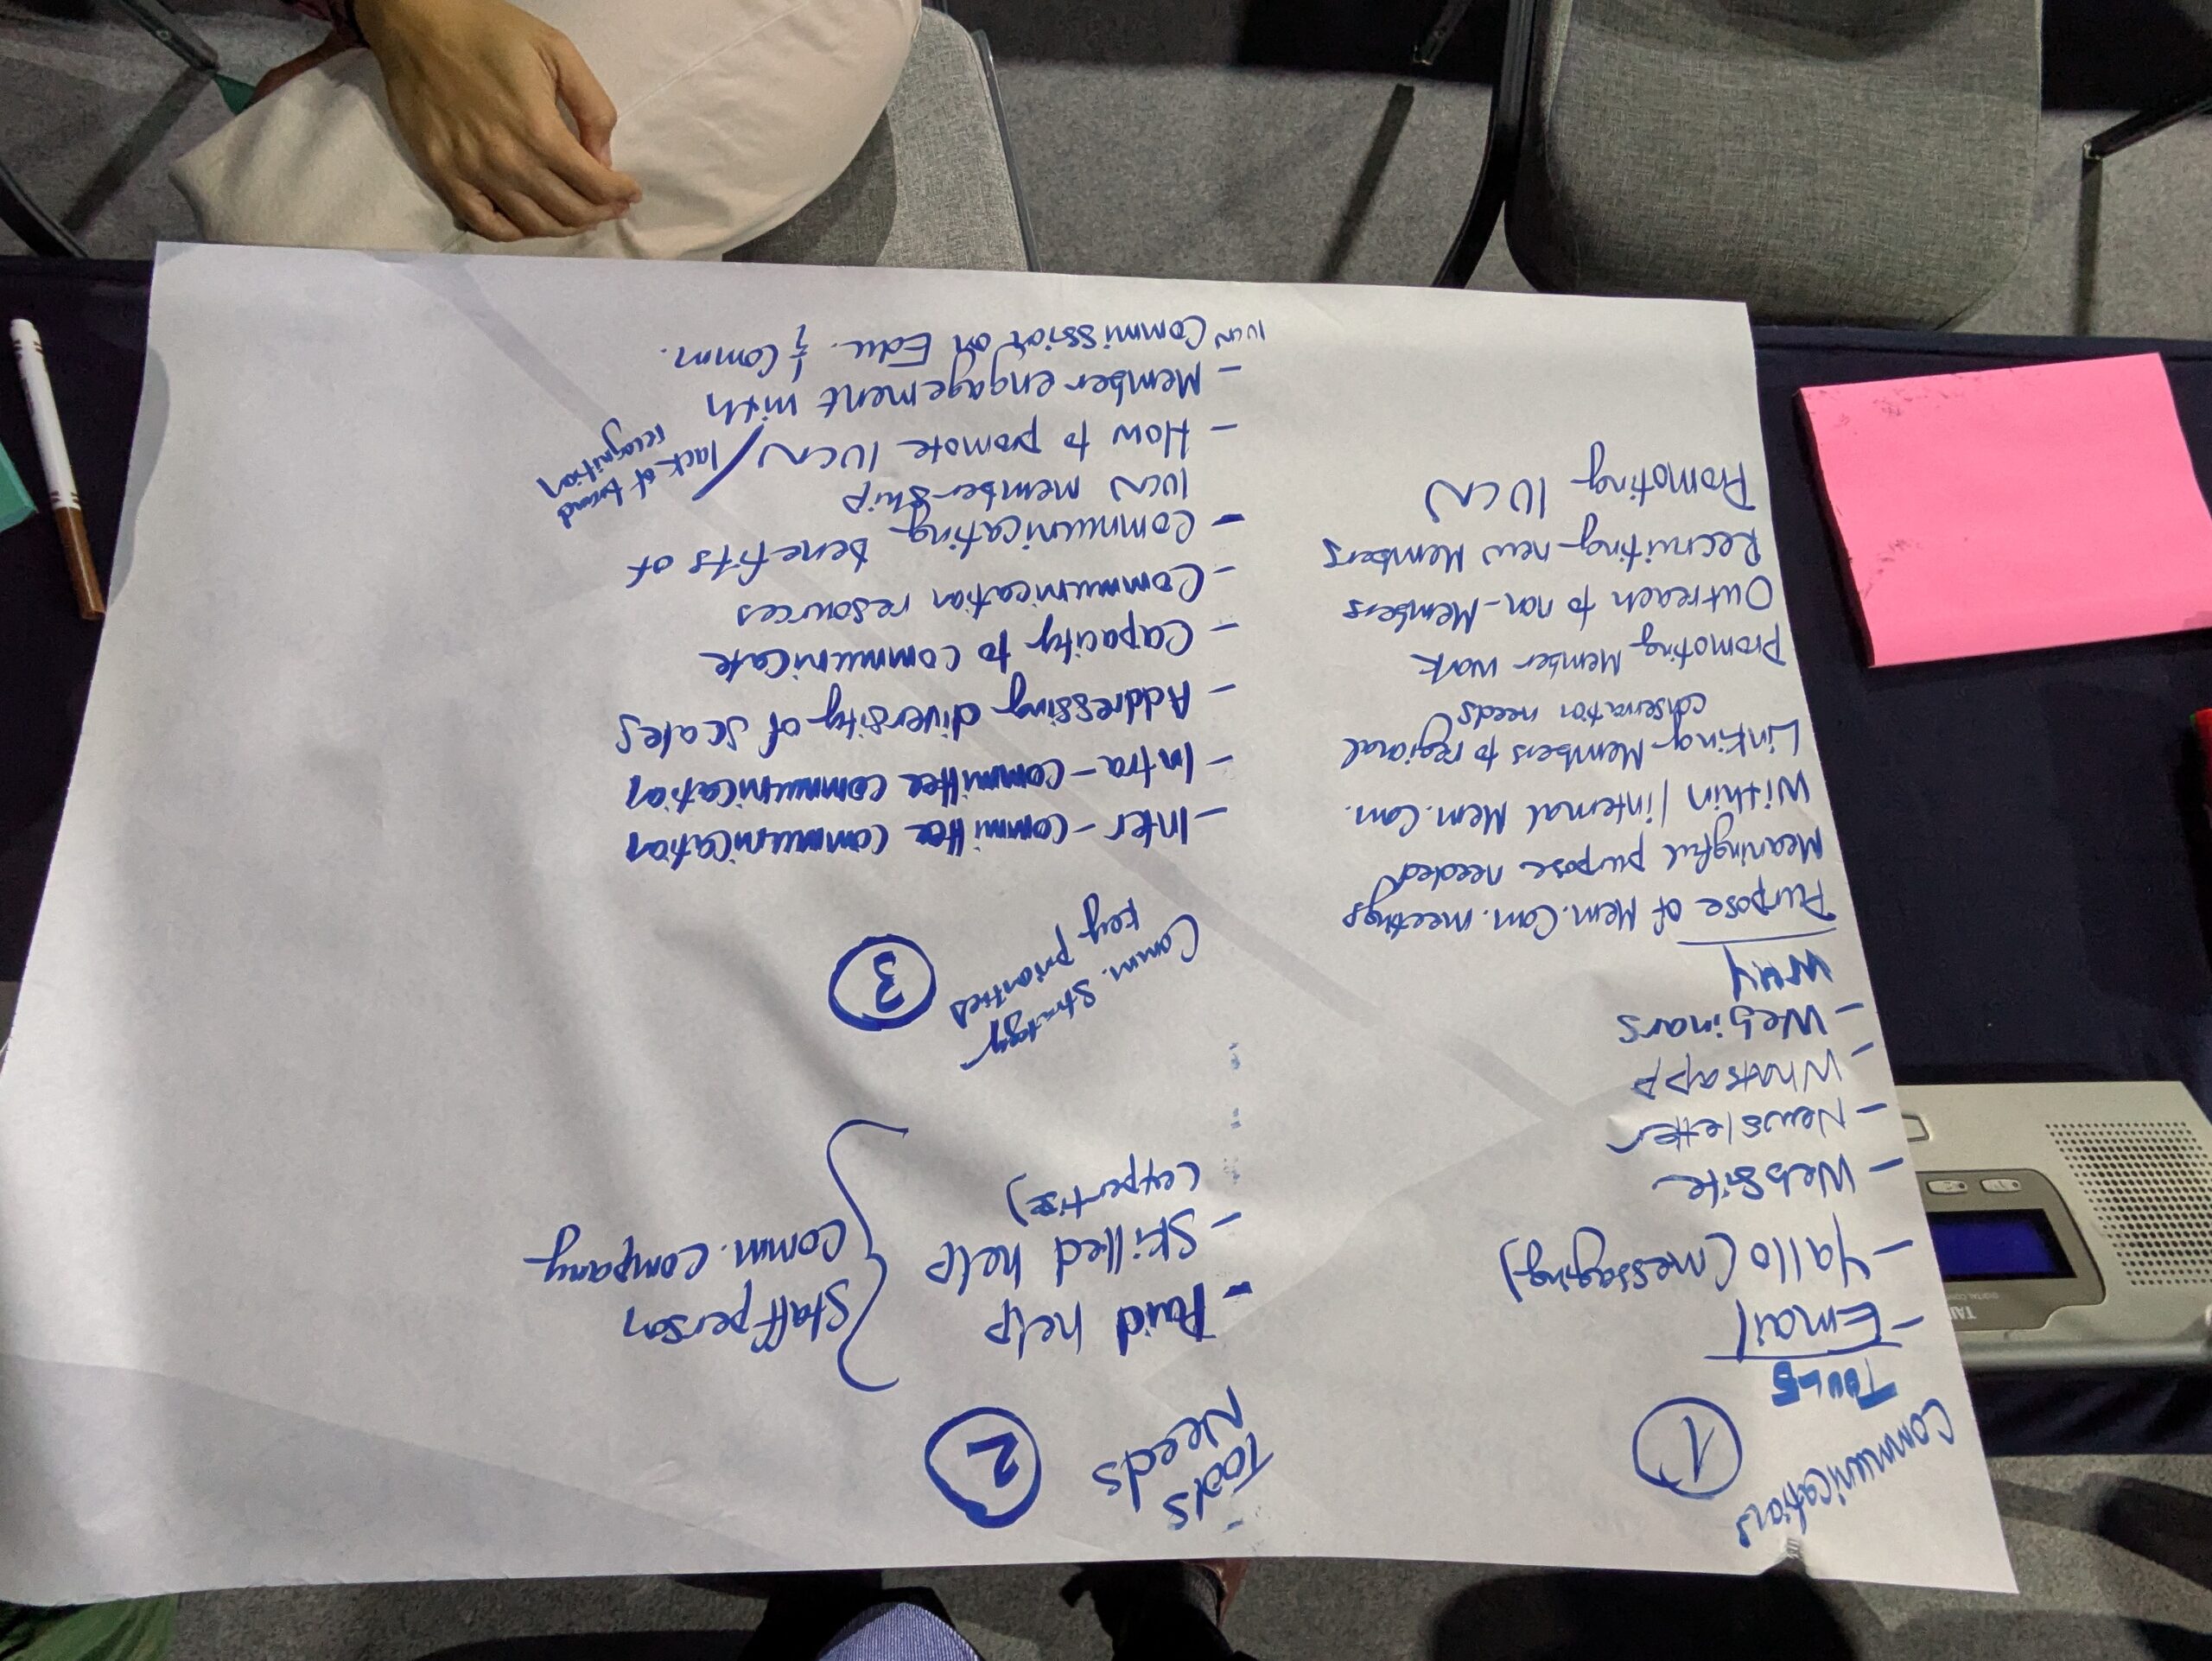 Communications
TOOLS
1
- Email
- Yallo (messaging)
- Website
- Newsletter
- Whatsapp
- Webinars
WHY
Purpose of Mem. Com. meetings
Meaningful purpose needed
Within / internal Mem. Com.
Linking Members to regional
conservation needs
Promoting Member work
Outreach to non-Members
Recruiting new Members
Promoting IUCN
Tools
Needs
2
- Paid help
- Skilled help
(expertise)
Staff person
Comm. Company
Comm. Strategy
key priorities
3
- Inter-committee communication
- Intra-committee communication
- Addressing diversity of scales
- Capacity to communicate
- Communication resources
- Communicating benefits of
IUCN membership
- How to promote IUCN / lack of brand
recognition
- Member engagement with
IUCN Commission on Edu. & Comm.